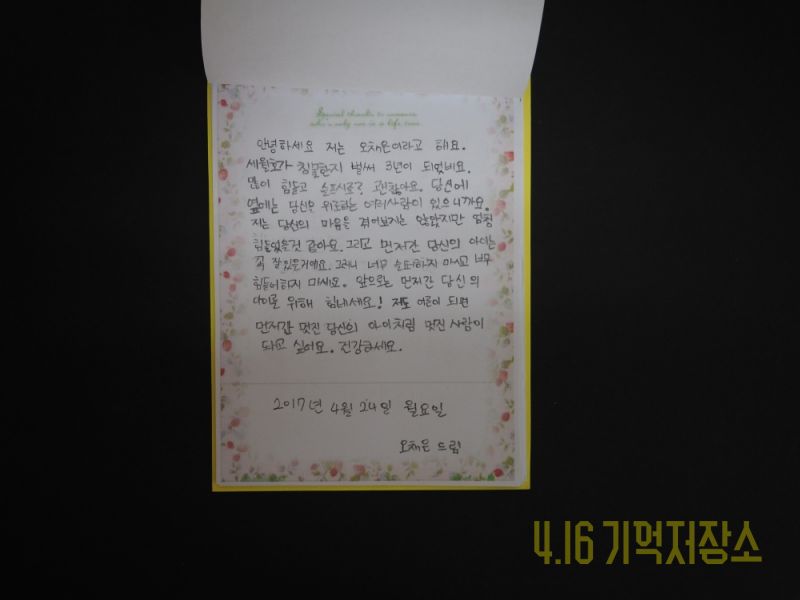 Special thanks to someone
who's only one in a life time.
안녕하세요 저는 오채은이라고 해요.
세월호가 침몰한지 벌써 3년이 되었네요.
많이 힘들고 슬프시죠? 괜찮아요. 당신에
옆에는 당신을 위로하는 여러사람이 있으니까요.
저는 당신의 마음을 겪어보지는 않았지만 엄청
힘들었을것 같아요. 그리고 먼저간 당신의 아이는
꼭 잘있을거에요. 그러니 너무 슬퍼하지 마시고 너무
힘들어하지 마세요. 앞으로는 먼저간 당신의
아이를 위해 힘내세요! 저도 어른이 되면
먼저간 멋진 당신의 아이처럼 멋진 사람이
되고 싶어요. 건강하세요.
2017년 4월 24일 월요일
오채은 드림
4.16 기억저장소